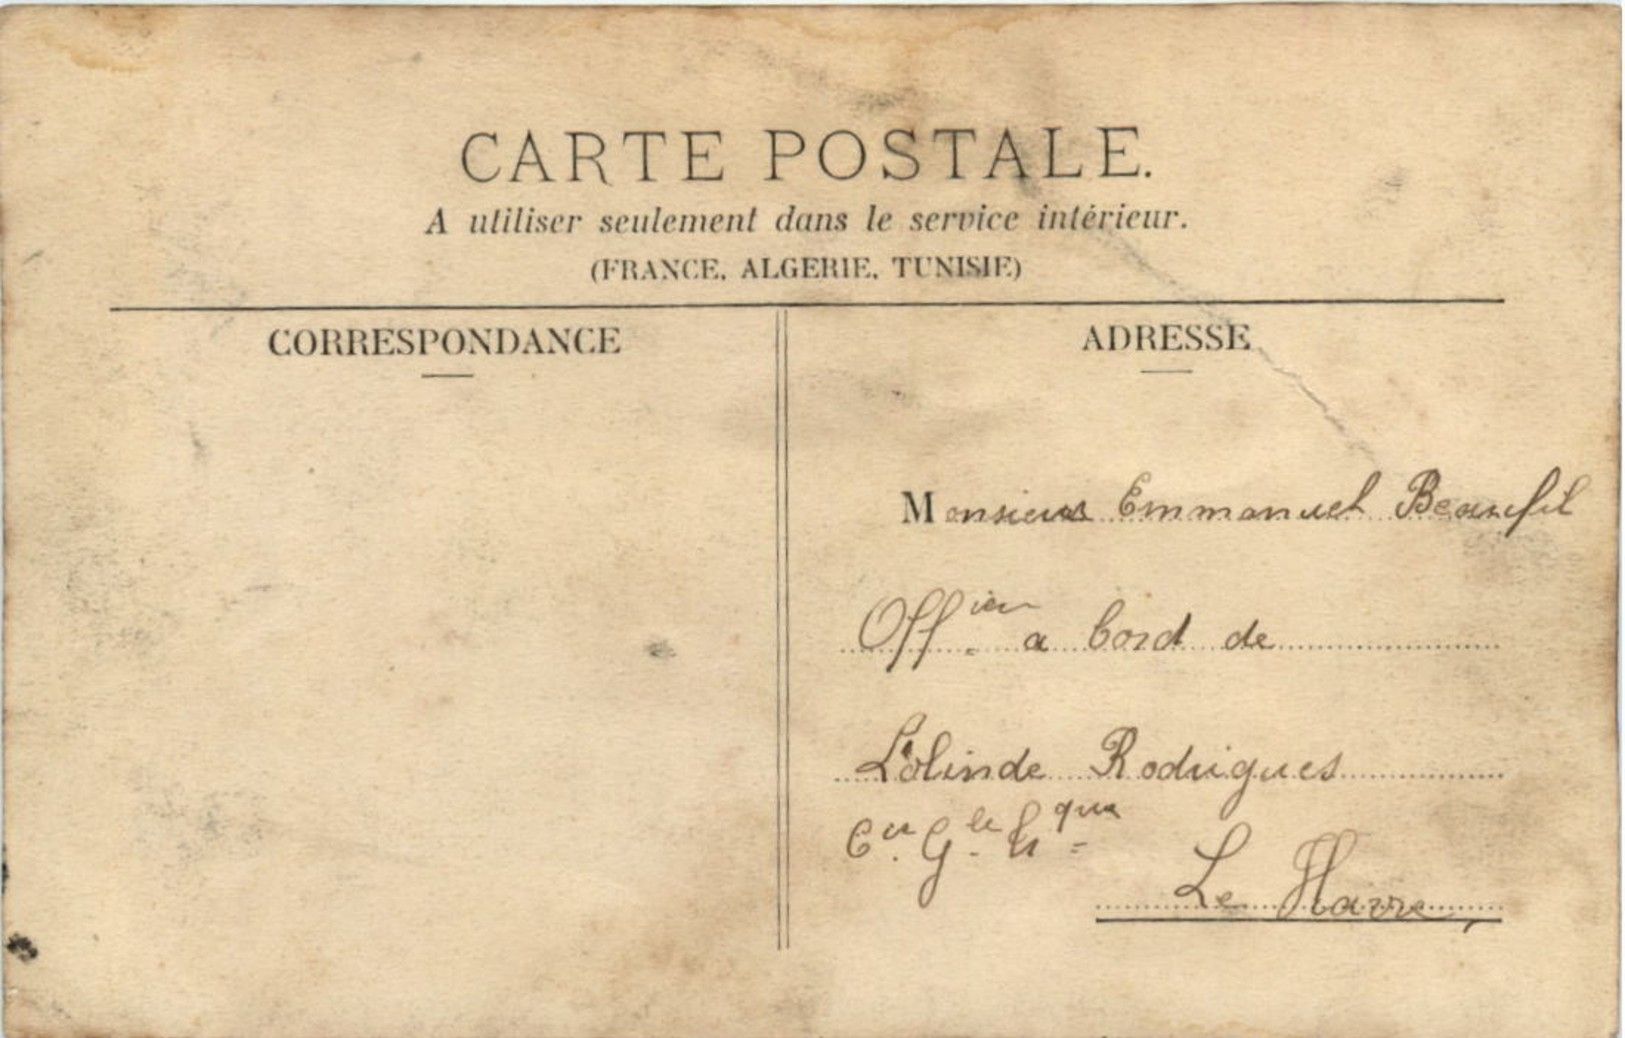 CARTE POSTALE.
A utiliser seulement dans le service intérieur.
(FRANCE, ALGERIE, TUNISIE)
CORRESPONDANCE
ADRESSE
Monsieur Emmanuel Beaufil
Officier a bord de
L'Olinde Rodrigues
Cie. Gle. tique
Le Havre,